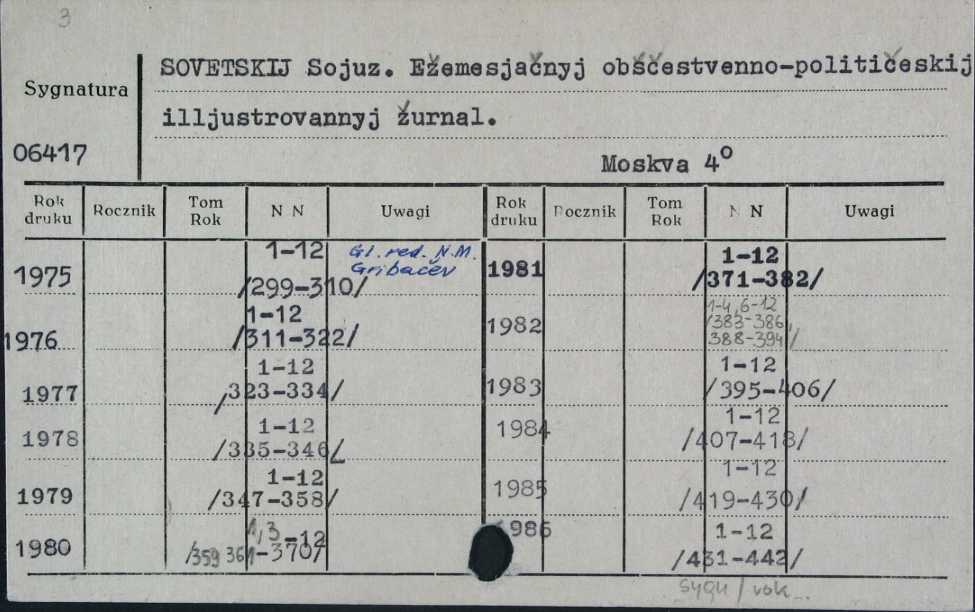 3
SOVETSKIJ Sojuz. Ežemesjačnyj obščestvenno-političeskij
Sygnatura
illjustrovannyj žurnal.
06417
Moskva 4º
Rok druku Rocznik Tom Rok N N Uwagi Rok druku Rocznik Tom Rok N N Uwagi
1975 1-12 /299-310/ Gl. red. N.M. Gribačev
1981 1-12 /371-382/
1976 1-12 /311-322/
1982 1-4, 6-12 /383-386, 388-394/
1977 1-12 /323-334/
1983 1-12 /395-406/
1978 1-12 /335-346/
1984 1-12 /407-418/
1979 1-12 /347-358/
1985 1-12 /419-430/
1980 1,3-12 /359 361-370/
1986 1-12 /431-442/
sygn / rok